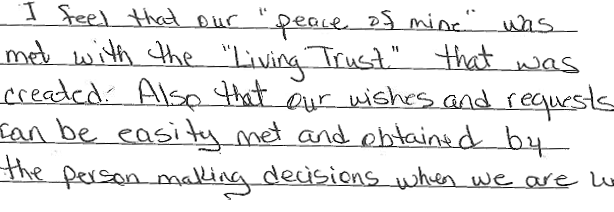 I feel that our "peace of mine" was
met with the "Living Trust" that was
created. Also that our wishes and requests
can be easity met and obtained by
the person making decisions when we are